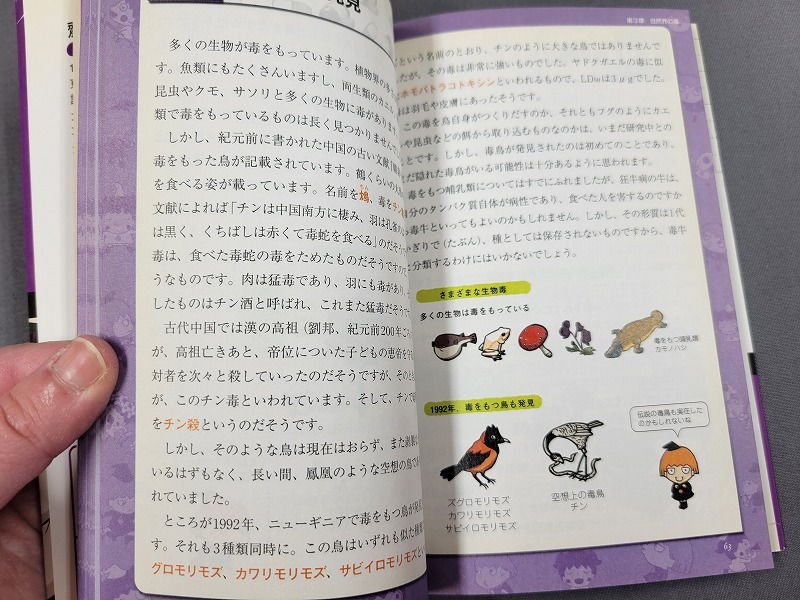 見
多くの生物が毒をもっています。植物界の多
す。魚類にもたくさんいますし、両生類のカエル
昆虫やクモ、サソリと多くの生物に毒があります
類で毒をもっているものは長く見つかりません
しかし、紀元前に書かれた中国の古い文献
毒をもった鳥が記載されています。鶴くらいの大
を食べる姿が載っています。名前を鴆、毒をチン
文献によれば「チンは中国南方に棲み、羽は孔雀の
は黒く、くちばしは赤くて毒蛇を食べる」のだそう
毒は、食べた毒蛇の毒をためたものだそうです
うなものです。肉は猛毒であり、羽にも毒があり、
したものはチン酒と呼ばれ、これまた猛毒だそう
古代中国では漢の高祖(劉邦、紀元前200年ごろ
が、高祖亡きあと、帝位についた子どもの恵帝を守
対者を次々と殺していったのだそうですが、そのと
が、このチン毒といわれています。そして、チンで
をチン殺というのだそうです。
しかし、そのような鳥は現在はおらず、また剥製
いるはずもなく、長い間、鳳凰のような空想の鳥で
れていました。
ところが1992年、ニューギニアで毒をもつ鳥が発見
す。それも3種類同時に。この鳥はいずれも似た種
グロモリモズ、カワリモリモズ、サビイロモリモズと
第3章 自然界の毒
という名前のとおり、チンのように大きな鳥ではありませんで
たが、その毒は非常に強いものでした。ヤドクガエルの毒に似
ホモバトラコトキシンといわれるもので、LD₅₀は3μgでした。
は羽毛や皮膚にあったそうです。
この毒を鳥自身がつくりだすのか、それともフグのようにカエ
や昆虫などの餌から取り込むものなのかは、いまだ研究中との
とです。しかし、毒鳥が発見されたのは初めてのことであり、
だ隠れた毒鳥がいる可能性は十分あるように思われます。
毒をもつ哺乳類についてはすでにふれましたが、狂牛病の牛は、
分のタンパク質自体が病性であり、食べた人を害するのですか
毒牛といってもよいのかもしれません。しかし、その形質は1代
かぎりで(たぶん)、種としては保存されないものですから、毒牛
と分類するわけにはいかないでしょう。
さまざまな生物毒
多くの生物は毒をもっている
毒をもつ哺乳類
カモノハシ
1992年、毒をもつ鳥も発見
伝説の毒鳥も実在した
のかもしれないね
ズグロモリモズ
カワリモリモズ
サビイロモリモズ
空想上の毒鳥
チン
63